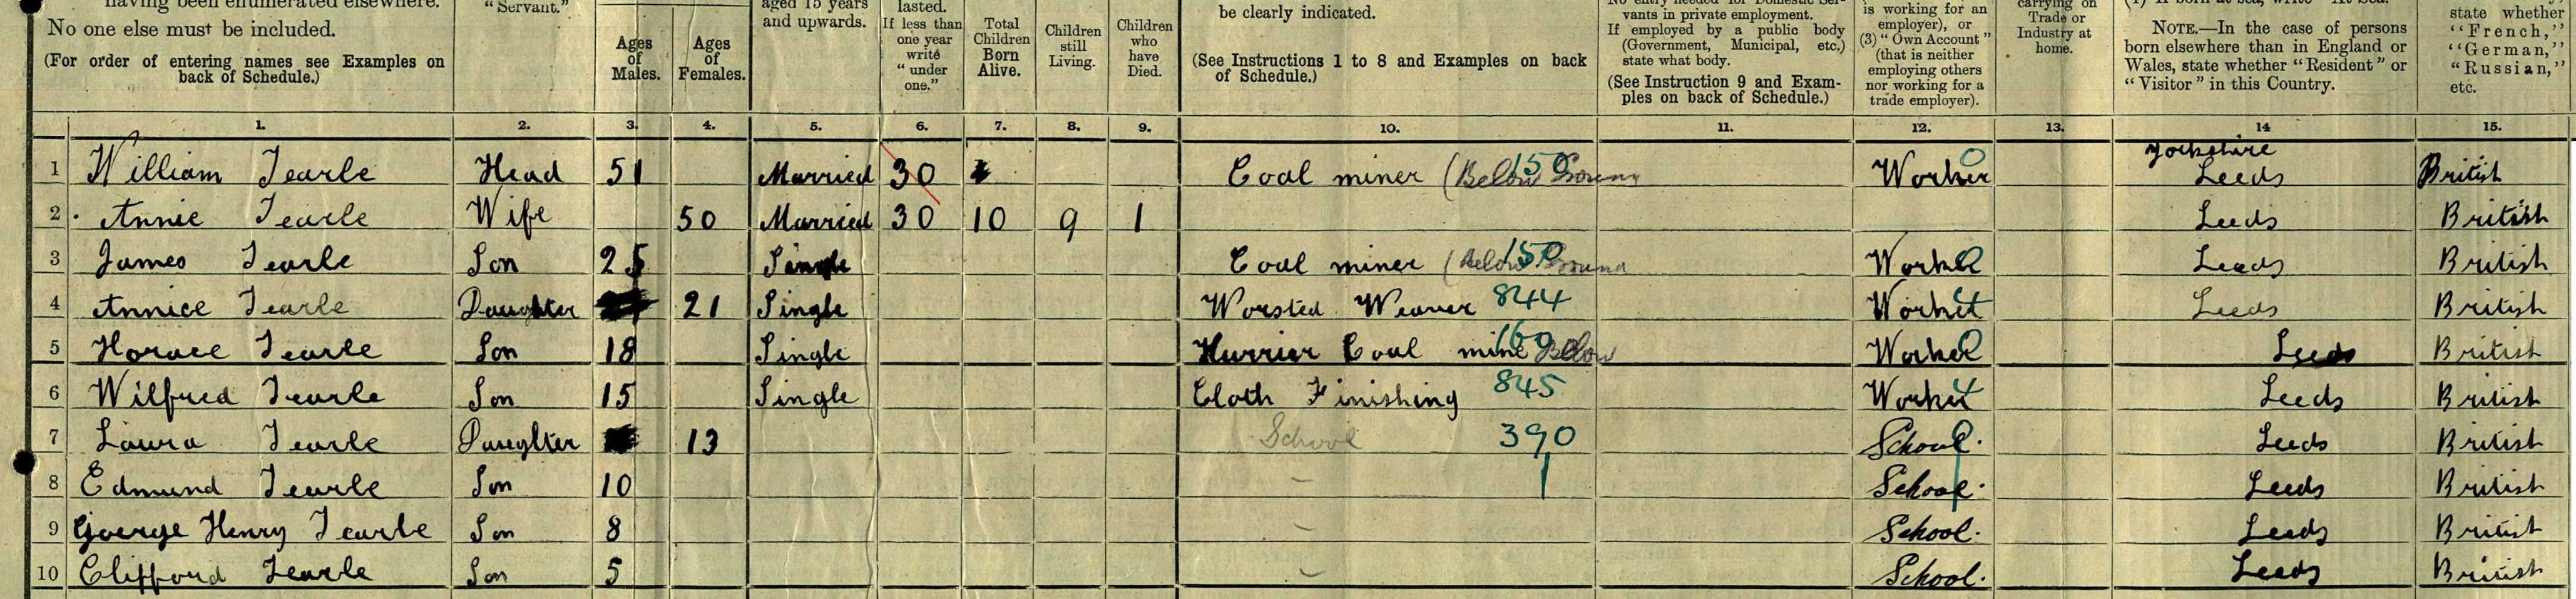 having been enumerated elsewhere.
No one else must be included.
(For order of entering names see Examples on
back of Schedule.)
"Servant."
Ages
of
Males.
Ages
of
Females.
aged 15 years
and upwards.
lasted.
If less than
one year
write
"under
one."
Total
Children
Born
Alive.
Children
still
Living.
Children
who
have
Died.
be clearly indicated.
(See Instructions 1 to 8 and Examples on back
of Schedule.)
No entry needed for Domestic Ser-
vants in private employment.
If employed by a public body
(Government, Municipal, etc.)
state what body.
(See Instruction 9 and Exam-
ples on back of Schedule.)
is working for an
employer), or
(3) "Own Account"
(that is neither
employing others
nor working for a
trade employer).
carrying on
Trade or
Industry at
home.
NOTE.—In the case of persons
born elsewhere than in England or
Wales, state whether "Resident" or
"Visitor" in this Country.
state whether
"French,"
"German,"
"Russian,"
etc.
1. 2. 3. 4. 5. 6. 7. 8. 9. 10. 11. 12. 13. 14 15.
Yorkshire
1 William Tearle Head 51 Married 30 Coal miner (Below Ground 150 Worker 0 Leeds British
2 Annie Tearle Wife 50 Married 30 10 9 1 Leeds British
3 James Tearle Son 25 Single Coal miner (Below Ground 150 Worker 0 Leeds British
4 Annice Tearle Daughter 21 Single Worsted Weaver 844 Worker 4 Leeds British
5 Horace Tearle Son 18 Single Hurrier Coal mine Below 160 Worker 0 Leeds British
6 Wilfred Tearle Son 15 Single Cloth Finishing 845 Worker 4 Leeds British
7 Laura Tearle Daughter 13 School 390 School. 0 Leeds British
8 Edmund Tearle Son 10 School. Leeds British
9 Goerge Henry Tearle Son 8 School. Leeds British
10 Clifford Tearle Son 5 School. Leeds British